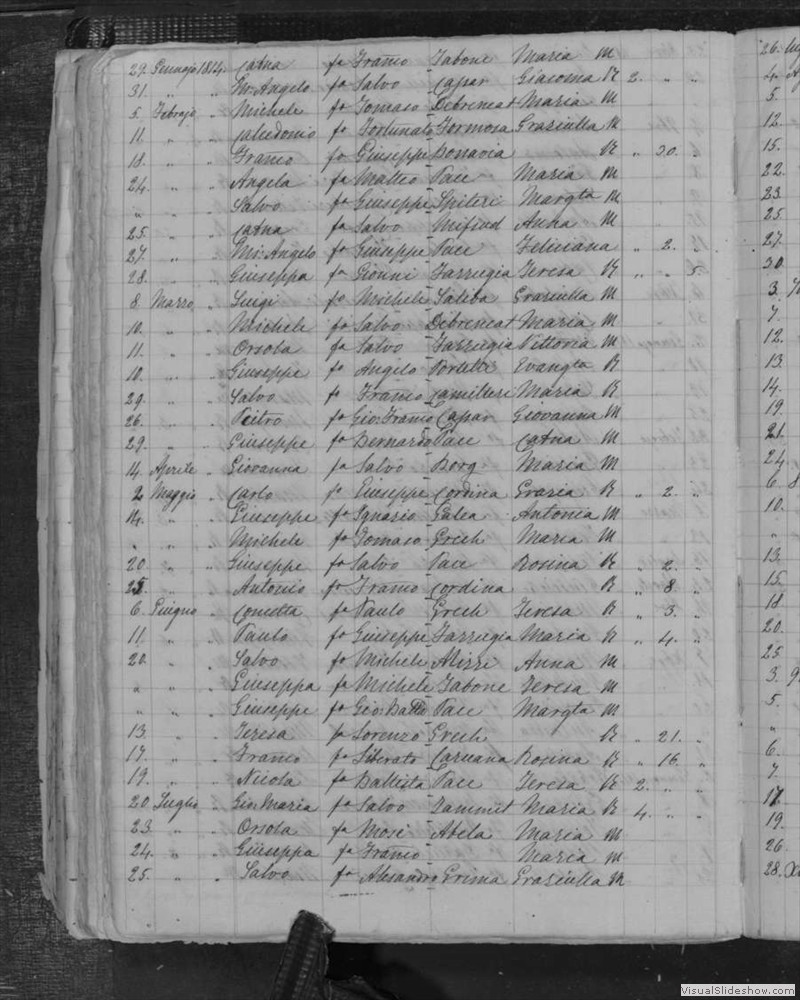 29. Gennajo 1814. Catna fa Franco Tabone Maria M
31. " " Mr. Angelo fo Salvo Capar Giacoma R 2. " "
5. Febrajo " Michele fo Tomaso Debrencat Maria M
11. " " Calcidonio fo Fortunato Formosa Graziulla M
18. " " Franco fo Giuseppe Bonavia R " 30. "
24. " " Angela fa Matteo Pace Maria M
" " " Salvo fo Giuseppe Spiteri Margta M
25. " " Catna fa Salvo Mifsud Anna M
27. " " Mi: Angelo fo Giuseppe Pace Feliciana " 2. "
28. " " Giuseppa fa Gionni Farrugia Teresa R " " 5.
8. Marzo " Luigi fo Michele Saliba Graziulla M
10. " " Michele fo Salvo Debrencat Maria M
11. " " Orsola fa Salvo Farrugia Vittoria M
10. " " Giuseppe fo Angelo Portelli Evangta R
29. " " Salvo fo Franco Camilleri Maria R
26. " " Peitro fo Gio: Franco Capar Giovanna M
29. " " Giuseppe fo Bernardo Pace Catna M
14. Aprile " Giovanna fa Salvo Borg Maria M
2. Maggio " Carlo fo Giuseppe Cordina Grazia R " 2. "
14. " " Giuseppe fo Ignazio Galea Antonia M
" " " Michele fo Tomaso Grech Maria M
20. " " Giuseppe fo Salvo Pace Rosina R " 2. "
25. " " Antonio fo Franco Cordina R " 8. "
6. Giugno " Concetta fa Paulo Grech Teresa R " 3. "
11. " " Paulo fo Giuseppe Farrugia Maria R " 4. "
20. " " Salvo fo Michele Mizzi Anna M
" " " Giuseppa fa Michele Tabone Teresa M
" " " Giuseppe fo Gio: Batta Pace Margta M
13. " " Teresa fa Lorenzo Grech R " 21. "
17. " " Franco fo Liberato Caruana Rosina R " 16. "
19. " " Nicola fo Battista Pace Teresa R 2. " "
20. Luglio " Gio: Maria fo Salvo Zammit Maria R 4. " "
23. " " Orsola fa Mosè Abela Maria M
24. " " Giuseppa fa Franco Maria M
25. " " Salvo fo Alesandro Grima Graziulla M
26.
4.
5.
12.
15.
22.
23.
25.
27.
30.
3.
7.
12.
13.
14.
19.
21.
24.
6.
10.
"
13.
15.
18
20.
25.
3.
5.
"
6.
7.
17.
19.
26.
28.
VisualSlideshow.com